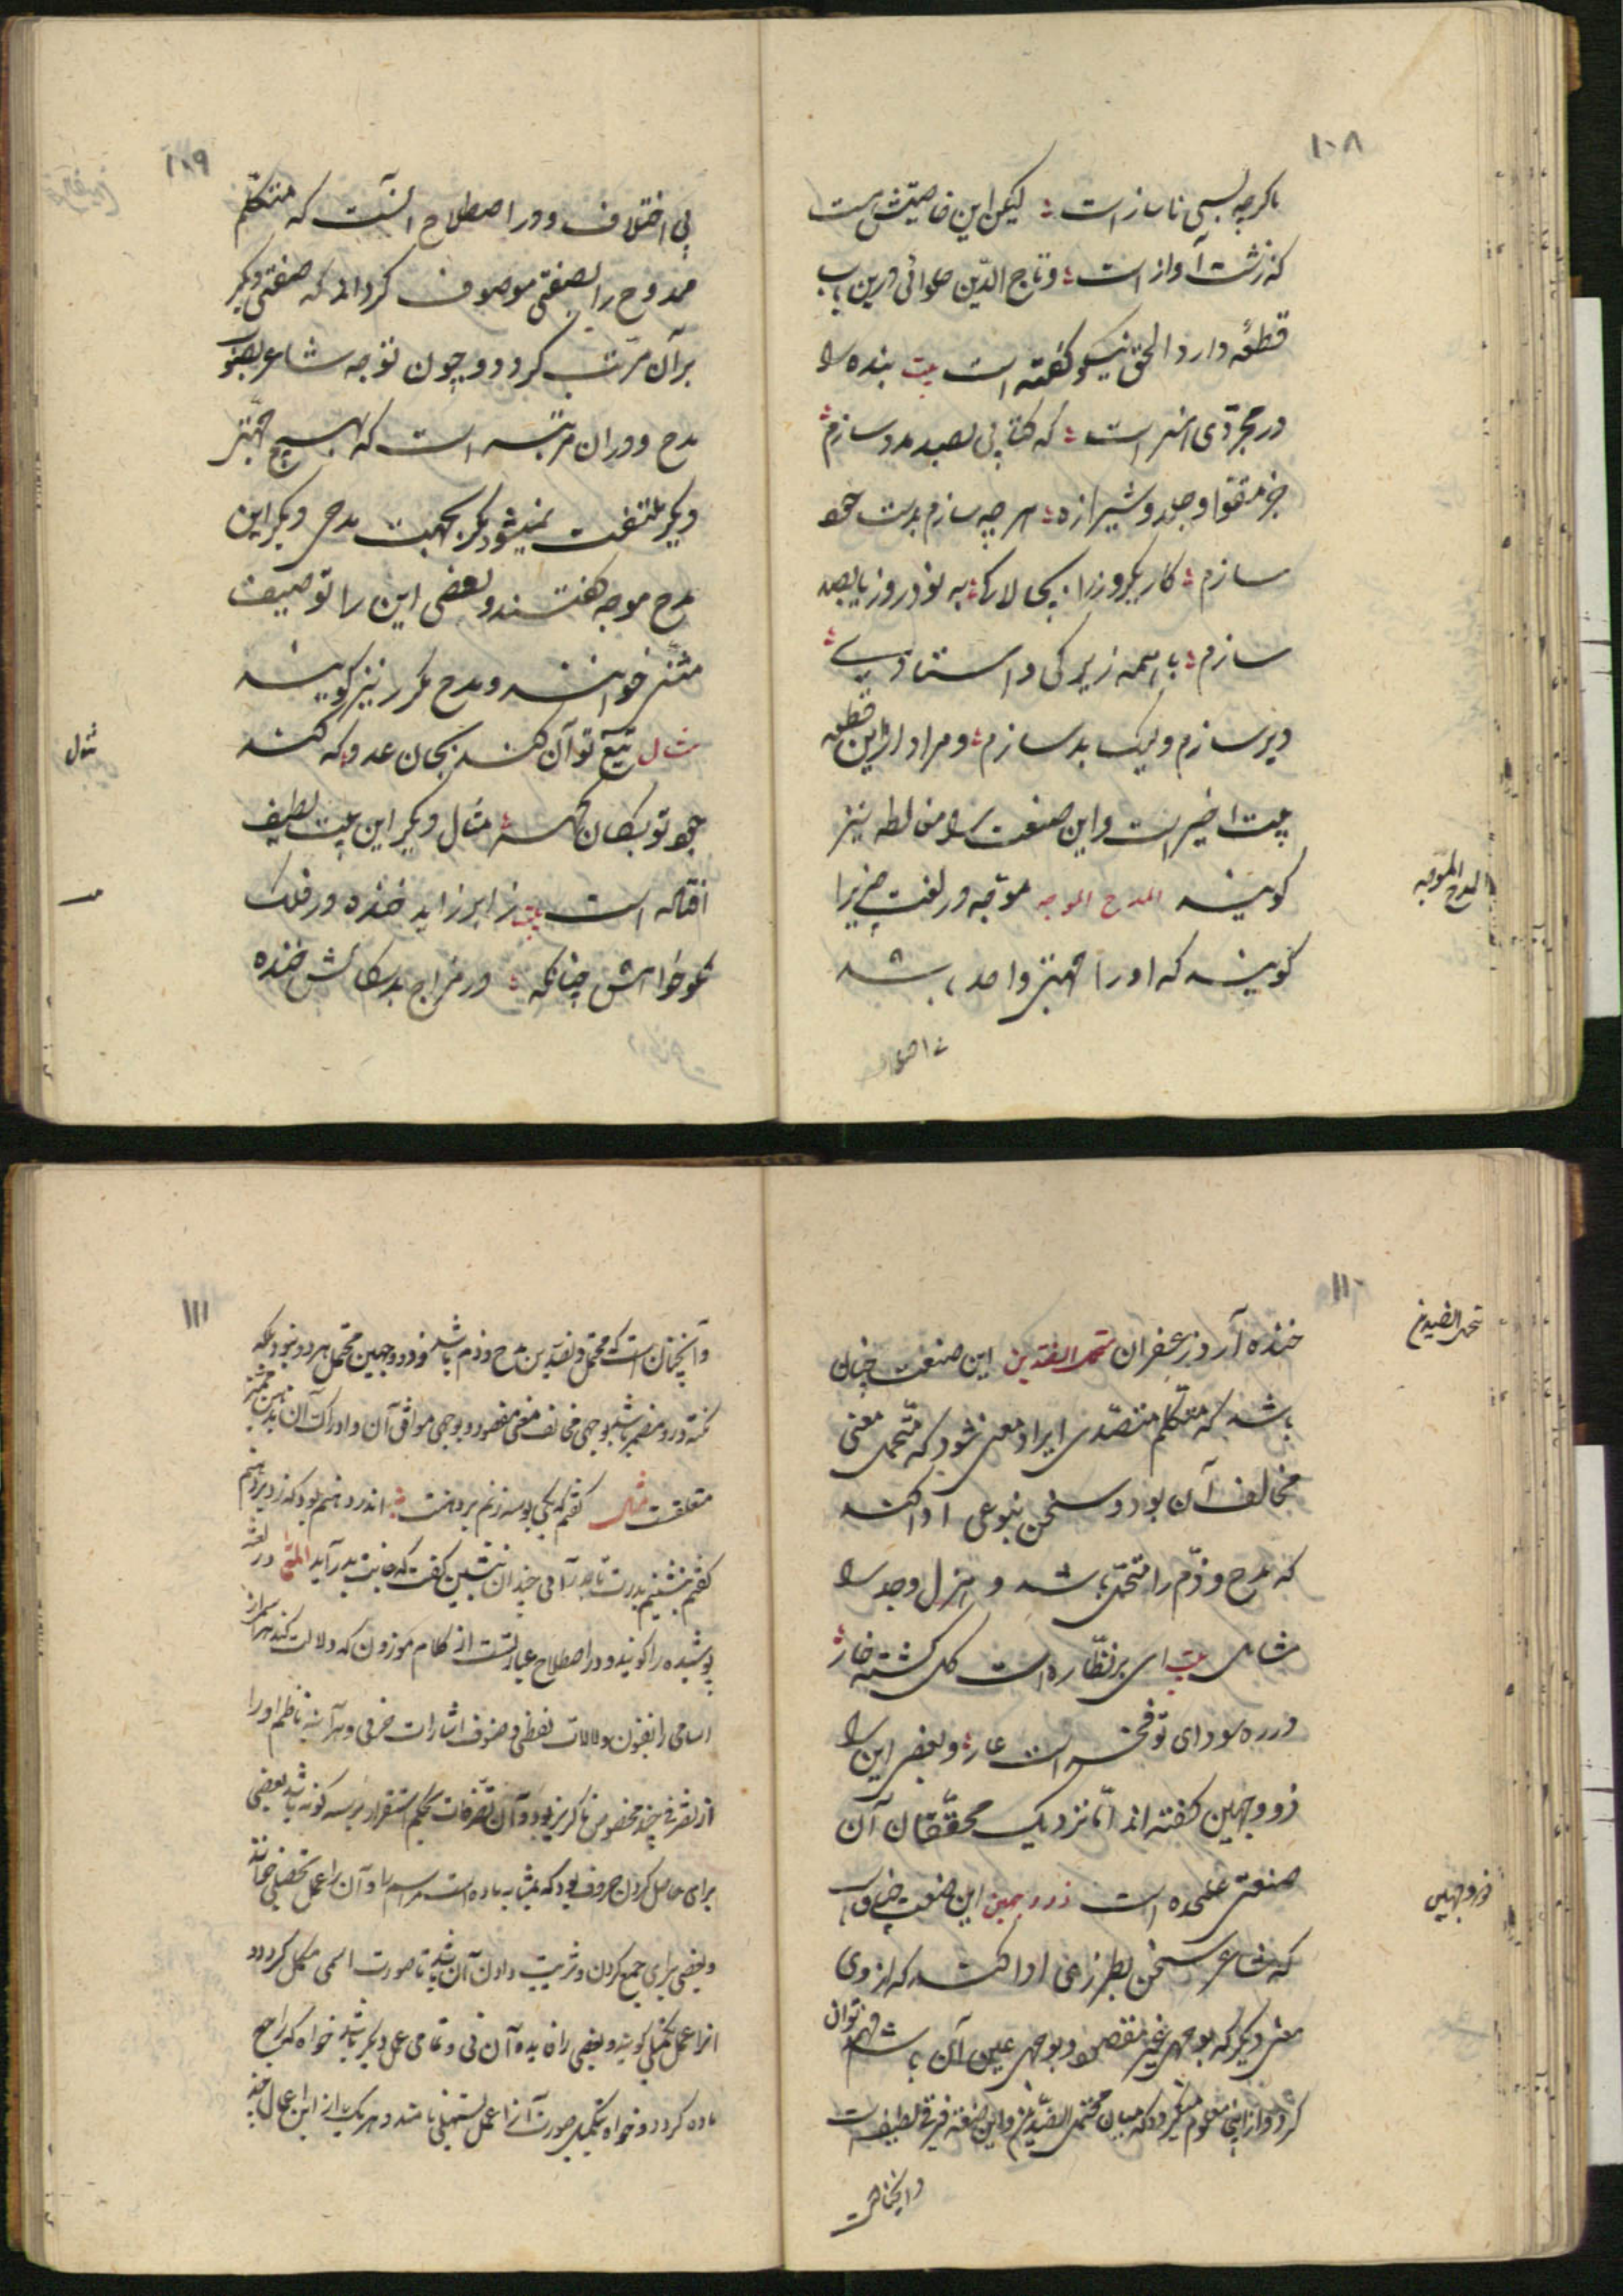 ۱۰۸
باکرچه بسی ناساز است لیکن این خاصیتش هست
که زشت آواز است وتاج الدین حلوائی درین باب
قطعه دارد الحق نیکو کفته است بیت بنده را
در مجردی هنر است که کتابی بصد مدد سازم
جز مقوا وجلد وشیرازه هر چه سازم بدست خود
سازم کار یکروز را به نود روز یا بصد
سازم با همه زیرکی واستادی
دیر سازم ولیک بد سازم ومراد ازین قطعه
بیت اخیر است واین صنعت را مغالطه نیز
کویند المدح الموجه موجه در لغت چیزیرا
کویند که او را جهتی واحد باشد
المدح الموجه
۱۰۹
بی اختلاف ودر اصطلاح آنست که متکلم
ممدوح را بصفتی موصوف کرداند که صفتی دیکر
بر آن مرتب کردد وچون توجه شاعر بصوب
مدح ودران مرتبه است که بهیچ جهتی
دیکر ملتفت نمیشود مکر بجهت مدحی دیکر این
مدح موجه کفتند وبعضی این را توصیف
مثنی خوانند ومدح مکرر نیز کویند
مثال تیغ تو آن کند بجان عدو که کند
جود تو بکان کهر مثال دیکر این بیت لطیف
افتاده است بیت ز ابر زاید خنده در فلک
نکوخواهش چنانکه در مزاج بدسکالش خنده
مثال
۱۱۰
خنده آرد زعفران محتمل الضدین این صنعت چنان
باشد که متکلم متصدی ایراد معنی شود که متحمل معنی
مخالف آن بود وسخن بنوعی ادا کند
که مدح وذم را متحمل باشد وهزل وجد را
شامل بیت ای بر نظاره است کل کشته خار
در ره سودای تو فخر است عار وبعضی این را
ذو وجهین کفته اند اما نزدیک محققان آن
صنعتی علحده است ذو وجهین این صنعت چنان
که شاعر سخن بطرزی ادا کند که از وی
معنی دیکر که بوجهی غیر مقصود وبوجهی عین آن باشد فهم توان
کرد وازاینجا معلوم میکردد که میان محتمل الضدین واین صنعت فرقی لطیف است
ذو وجهین
۱۱۱
وآنچنانست که محتمل الضدین مدح وذم باشد وذو وجهین محتمل هر دو نبود بلکه
نکته درو مضمر باشد بوجهی مخالف معنی مقصود وبوجهی موافق آن وادراک آن بذهن
متعلقست مثال کفتم که یکی بوسه زنم بر دهنت
کفتم بنشینم بدرت تا بدر آئی چندان بنشین کفت که جانت بدر آید المعمی در لغت
پوشیده را کویند ودر اصطلاح عبارتست از کلام موزون که دلالت کند بر اسمی از
اسامی را بفنون دلالات لفظی وصنوف اشارات حرفی وهر آینه ناظم او را
از تصرفی چند مخصوص ناکریز بود وآن تصرفات بحکم استقرا بر سه کونه باشد بعضی
برای حاصل کردن حروف بود که بمثابه ماده است مر اسم را وآن را عمل تحصیلی خوانند
وبعضی برای جمع کردن وترتیب دادن آن باشد تا صورت اسمی مکمل کردد و
انرا عمل تکمیلی کویند وبعضی را فایده آن نی وتمامی عمل دیکر باشد خواه که راجع
ماده کردد وخواه بتکمیل صورت آنرا عمل تسهیلی نامند وهر یک از این اعمال چند